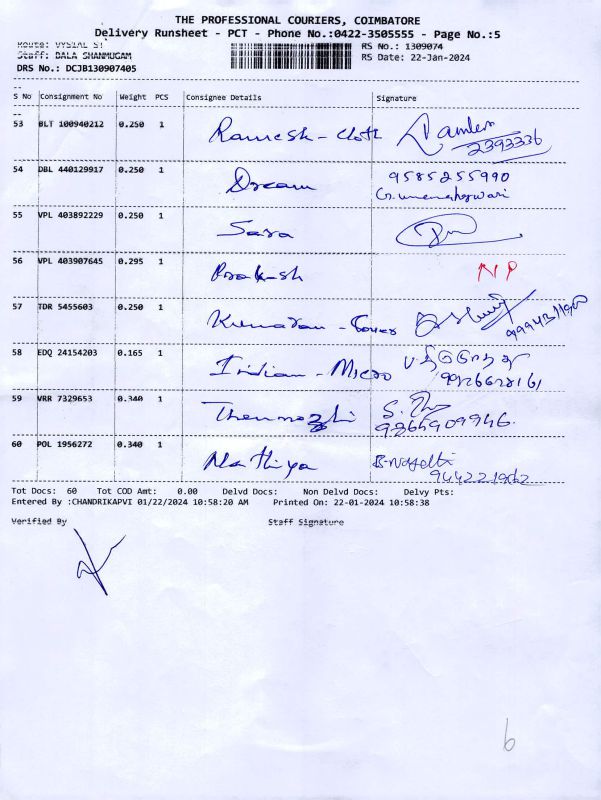 THE PROFESSIONAL COURIERS, COIMBATORE
Delivery Runsheet - PCT - Phone No.:0422-3505555 - Page No.:5
Route: VYSIAL ST
RS No.: 1309074
Staff: BALA SHANMUGAM
RS Date: 22-Jan-2024
DRS No.: DCJB130907405
S No Consignment No Weight PCS Consignee Details Signature
53 BLT 100940212 0.250 1 Ramesh - Cloth
2393336
54 DBL 440129917 0.250 1 Dream 9585255990
G. Umamaheswari
55 VPL 403892229 0.250 1 Sara
56 VPL 403907645 0.295 1 Prakash NP
57 TDR 5455603 0.250 1 Kumaran -
58 EDQ 24154203 0.165 1 Indian - Micro
59 VRR 7329653 0.340 1 Thenmozhi
60 POL 1956272 0.340 1 Nathiya
Tot Docs: 60 Tot COD Amt: 0.00 Delvd Docs: Non Delvd Docs: Delvy Pts:
Entered By :CHANDRIKAPVI 01/22/2024 10:58:20 AM Printed On: 22-01-2024 10:58:38
Verified By Staff Signature
6